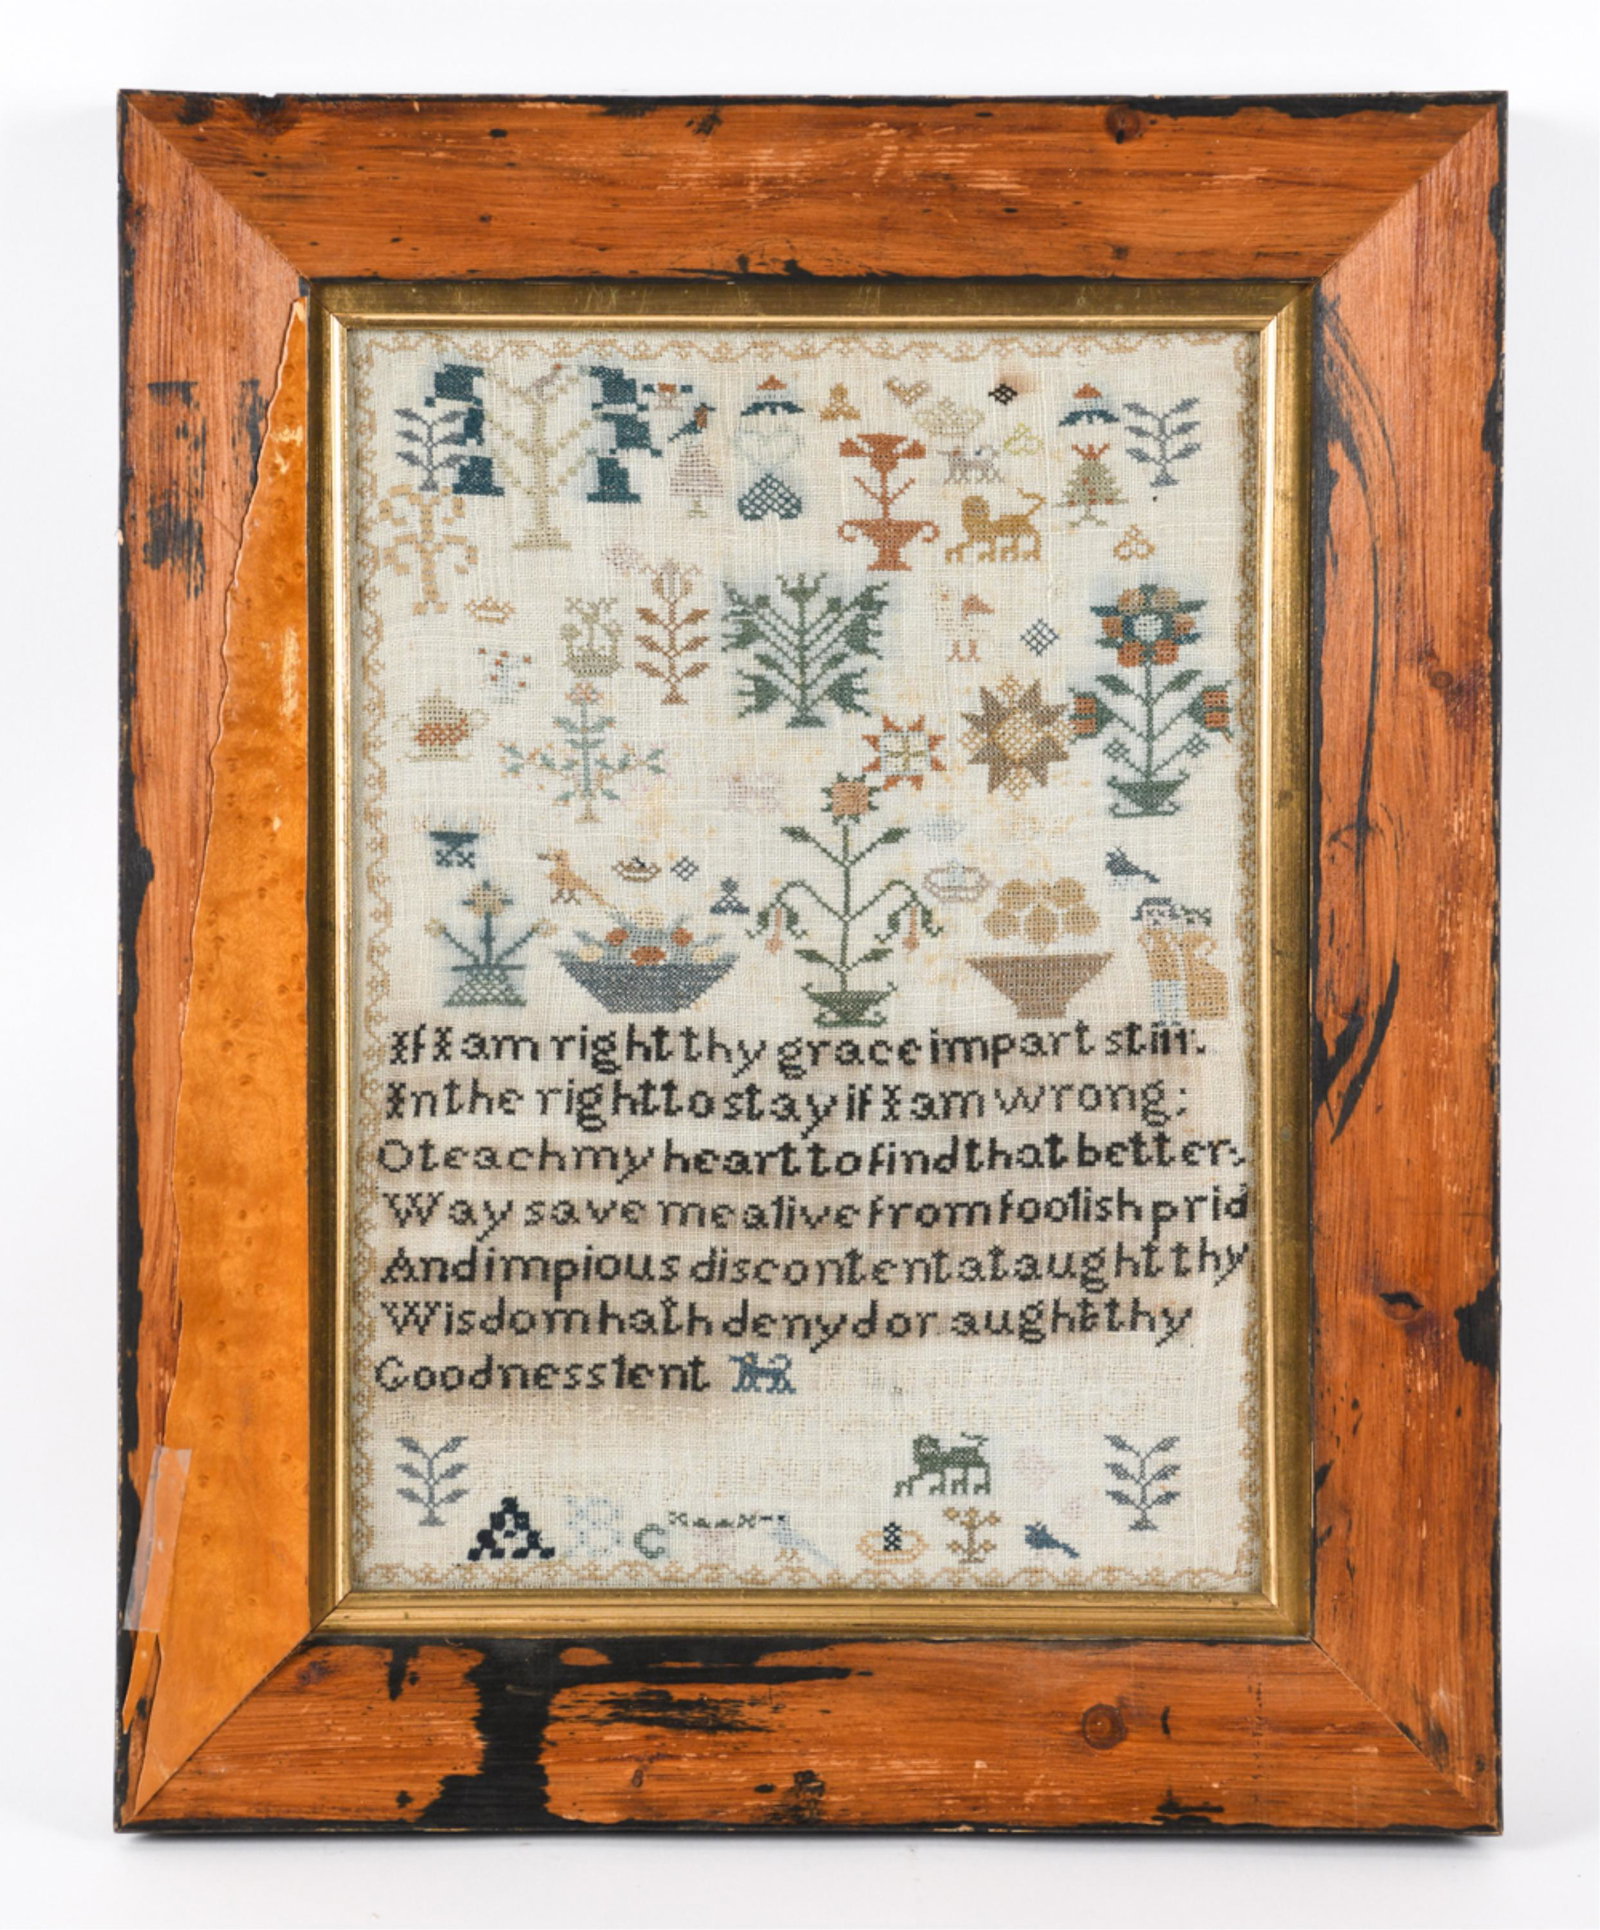 If I am right thy grace impart still.
In the right to stay if I am wrong;
O teach my heart to find that better.
Way save me alive from foolish prid
And impious discontent at aught thy
Wisdom hath denyd or aught thy
Goodness lent
A B C